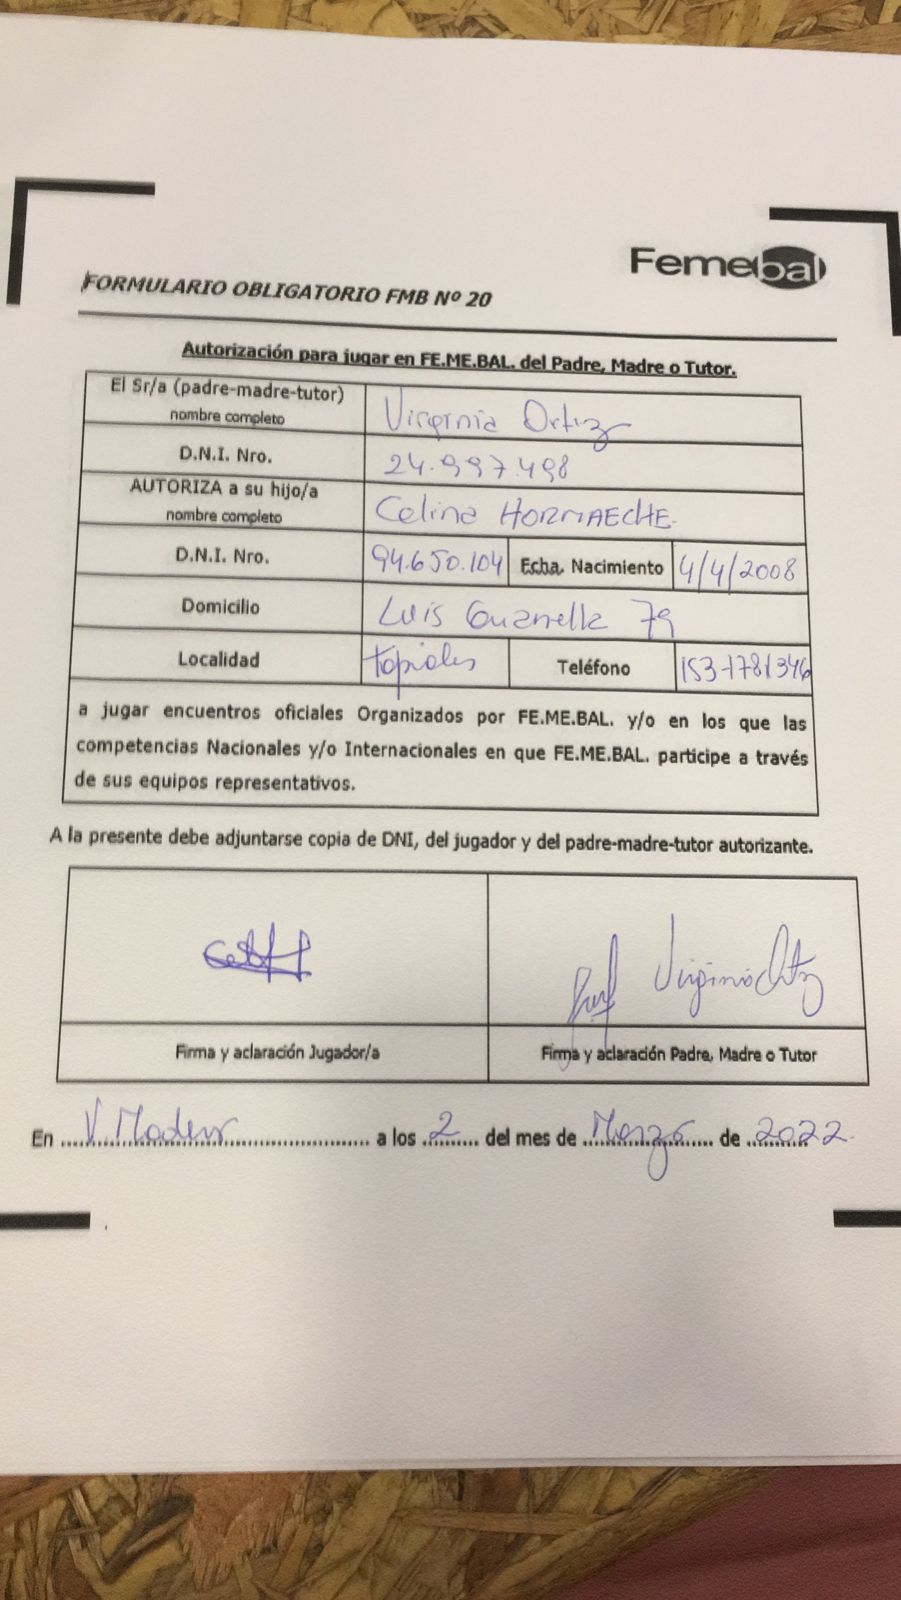 Femebal
FORMULARIO OBLIGATORIO FMB Nº 20
Autorización para jugar en FE.ME.BAL. del Padre, Madre o Tutor.
El Sr/a (padre-madre-tutor)
nombre completo
Virginia Ortiz
D.N.I. Nro.
24.997.498
AUTORIZA a su hijo/a
nombre completo
Celina HORMAECHE.
D.N.I. Nro.
94.650.104
Fcha. Nacimiento
4/4/2008
Domicilio
Luis Guanella 79
Localidad
tapiales
Teléfono
a jugar encuentros oficiales Organizados por FE.ME.BAL. y/o en los que las
competencias Nacionales y/o Internacionales en que FE.ME.BAL. participe a través
de sus equipos representativos.
A la presente debe adjuntarse copia de DNI, del jugador y del padre-madre-tutor autorizante.
Virginia Ortiz
Firma y aclaración Jugador/a
Firma y aclaración Padre, Madre o Tutor
En V. Madero a los 2 del mes de Marzo de 2022.